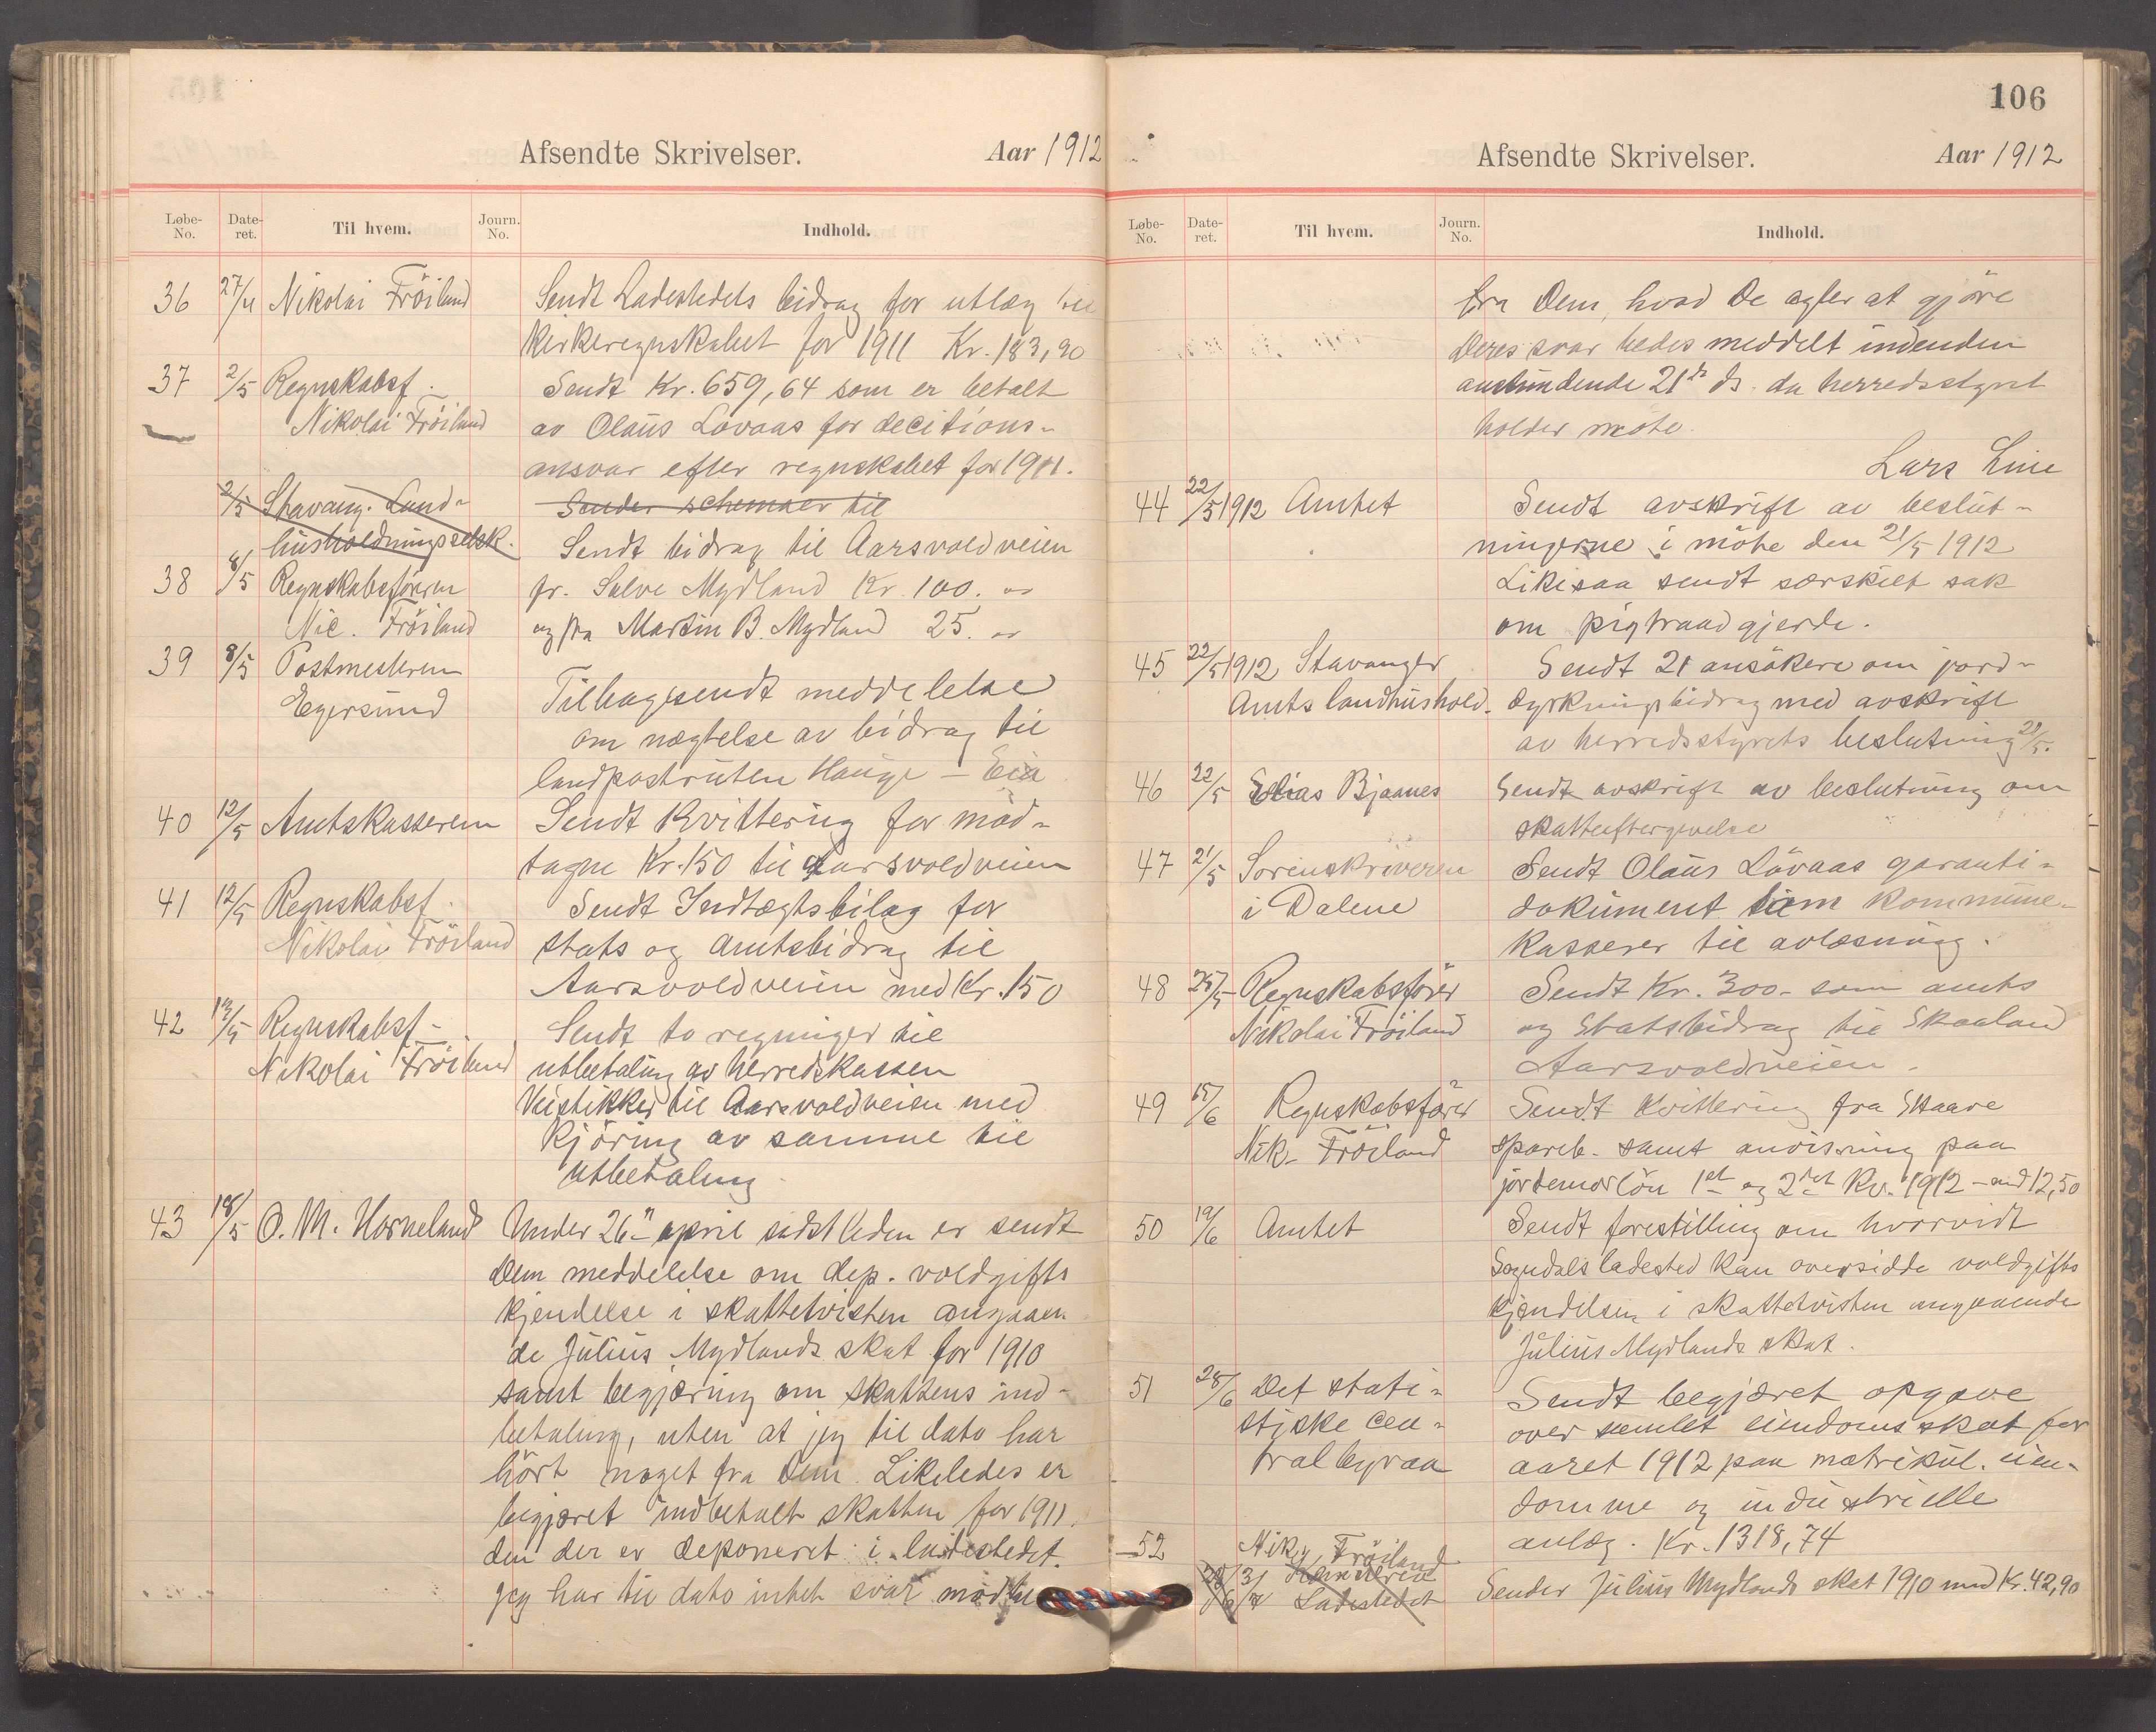 Afsendte Skrivelser. Aar 1912
Løbe-No. Date-ret. Til hvem. Journ. No. Indhold.
36 27/4 Nikolai Fröiland Sendt Ladestedets bidrag for utlæg til
Kirkeregnskabet for 1911 Kr. 183,90
37 2/5 Regnskabsf. Sendt Kr. 659,64 som er betalt
Nikolai Fröiland av Olaus Lovaas for decitions-
ansvar efter regnskabet for 1911.
2/5 Stavang. Land- Sender schemaer til
husholdningsselsk. Sendt bidrag til Aarsvoldveien
38 8/5 Regnskabsförern fr. Salve Mydland Kr. 100. "
Nic. Fröiland og fra Martin B. Mydland 25. "
39 8/5 Postmesteren
Egersund Tilbagesendt meddelelse
om nægtelse av bidrag til
landpostruten Hauge – Eia
40 12/5 Amtskasseren Sendt Kvittering for mod-
tagne Kr. 150 til Aarsvoldveien
41 12/5 Regnskabsf. Sendt Indtægtsbilag for
Nikolai Fröiland stats og amtsbidrag til
Aarsvoldveien med Kr. 150
42 13/5 Regnskabsf- Sendt to regninger til
Nikolai Fröiland utbetaling av Herredskassen
Veistikker til Aarsvoldveien med
Kjöring av samme til
utbetaling
43 18/5 O. M. Horneland Under 26" april sidstleden er sendt
Dem meddelelse om dep. voldgifts
kjendelse i skattetvisten angaaen
de Julius Mydlands skat for 1910
samt begjæring om skattens ind-
betaling, uten at jeg til dato har
hört noget fra Dem. Likeledes er
begjæret indbetalt skatten for 1911.
den der er deponeret i ladestedet.
Jeg har til dato intet svar
106
Afsendte Skrivelser. Aar 1912
Løbe-No. Date-ret. Til hvem. Journ. No. Indhold.
fra Dem, hvad De agter at gjöre
Deres svar bedes meddelt indenden
anstundende 21de ds. da herredsstyret
holder möte.
Lars Line
44 22/5 1912 Amtet Sendt avskrift av beslut-
ningerne i möte den 21/5 1912
Likesaa sendt særskilt sak
om pigtraadgjerde.
45 22/5 1912 Stavanger Sendt 21 ansökere om jord-
Amts landhushold. dyrkningsbidrag med avskrift
av herredsstyrets beslutning 21/5.
46 22/5 Elias Bjaanes Sendt avskrift av beslutning om
skatteeftergivelse
47 21/5 Sorenskriveren Sendt Olaus Lövaas garanti-
i Dalene dokument som kommune-
kasserer til avlæsning.
48 25/5 Regnskabsförer Sendt Kr. 300.- som amts
Nikolai Fröiland og Statsbidrag til Skaaland
Aarsvoldveien.
49 15/6 Regnskabsförer Sendt Kvittering fra Skaare
Nik. Fröiland spareb. samt anvisning paa
jordemorlön 1st og 2det Kv. 1912 – med 12,50
50 19/6 Amtet Sendt forestilling om hvorvidt
Sogndals ladested kan oversidde voldgifts
kjendelsen i skattetvisten angaaende
Julius Mydlands skat.
51 28/6 Det stati- Sendt begjæret opgave
stiske cen- over samlet eiendomsskat for
tralbyraa aaret 1912 paa matrikul. eien-
domme og industrielle
anlæg. Kr. 1318,74
52 Nik. Fröiland
28/6 3/7 Kemneren Sender Julius Mydlands skat 1910 med Kr. 42,90
Ladestedet